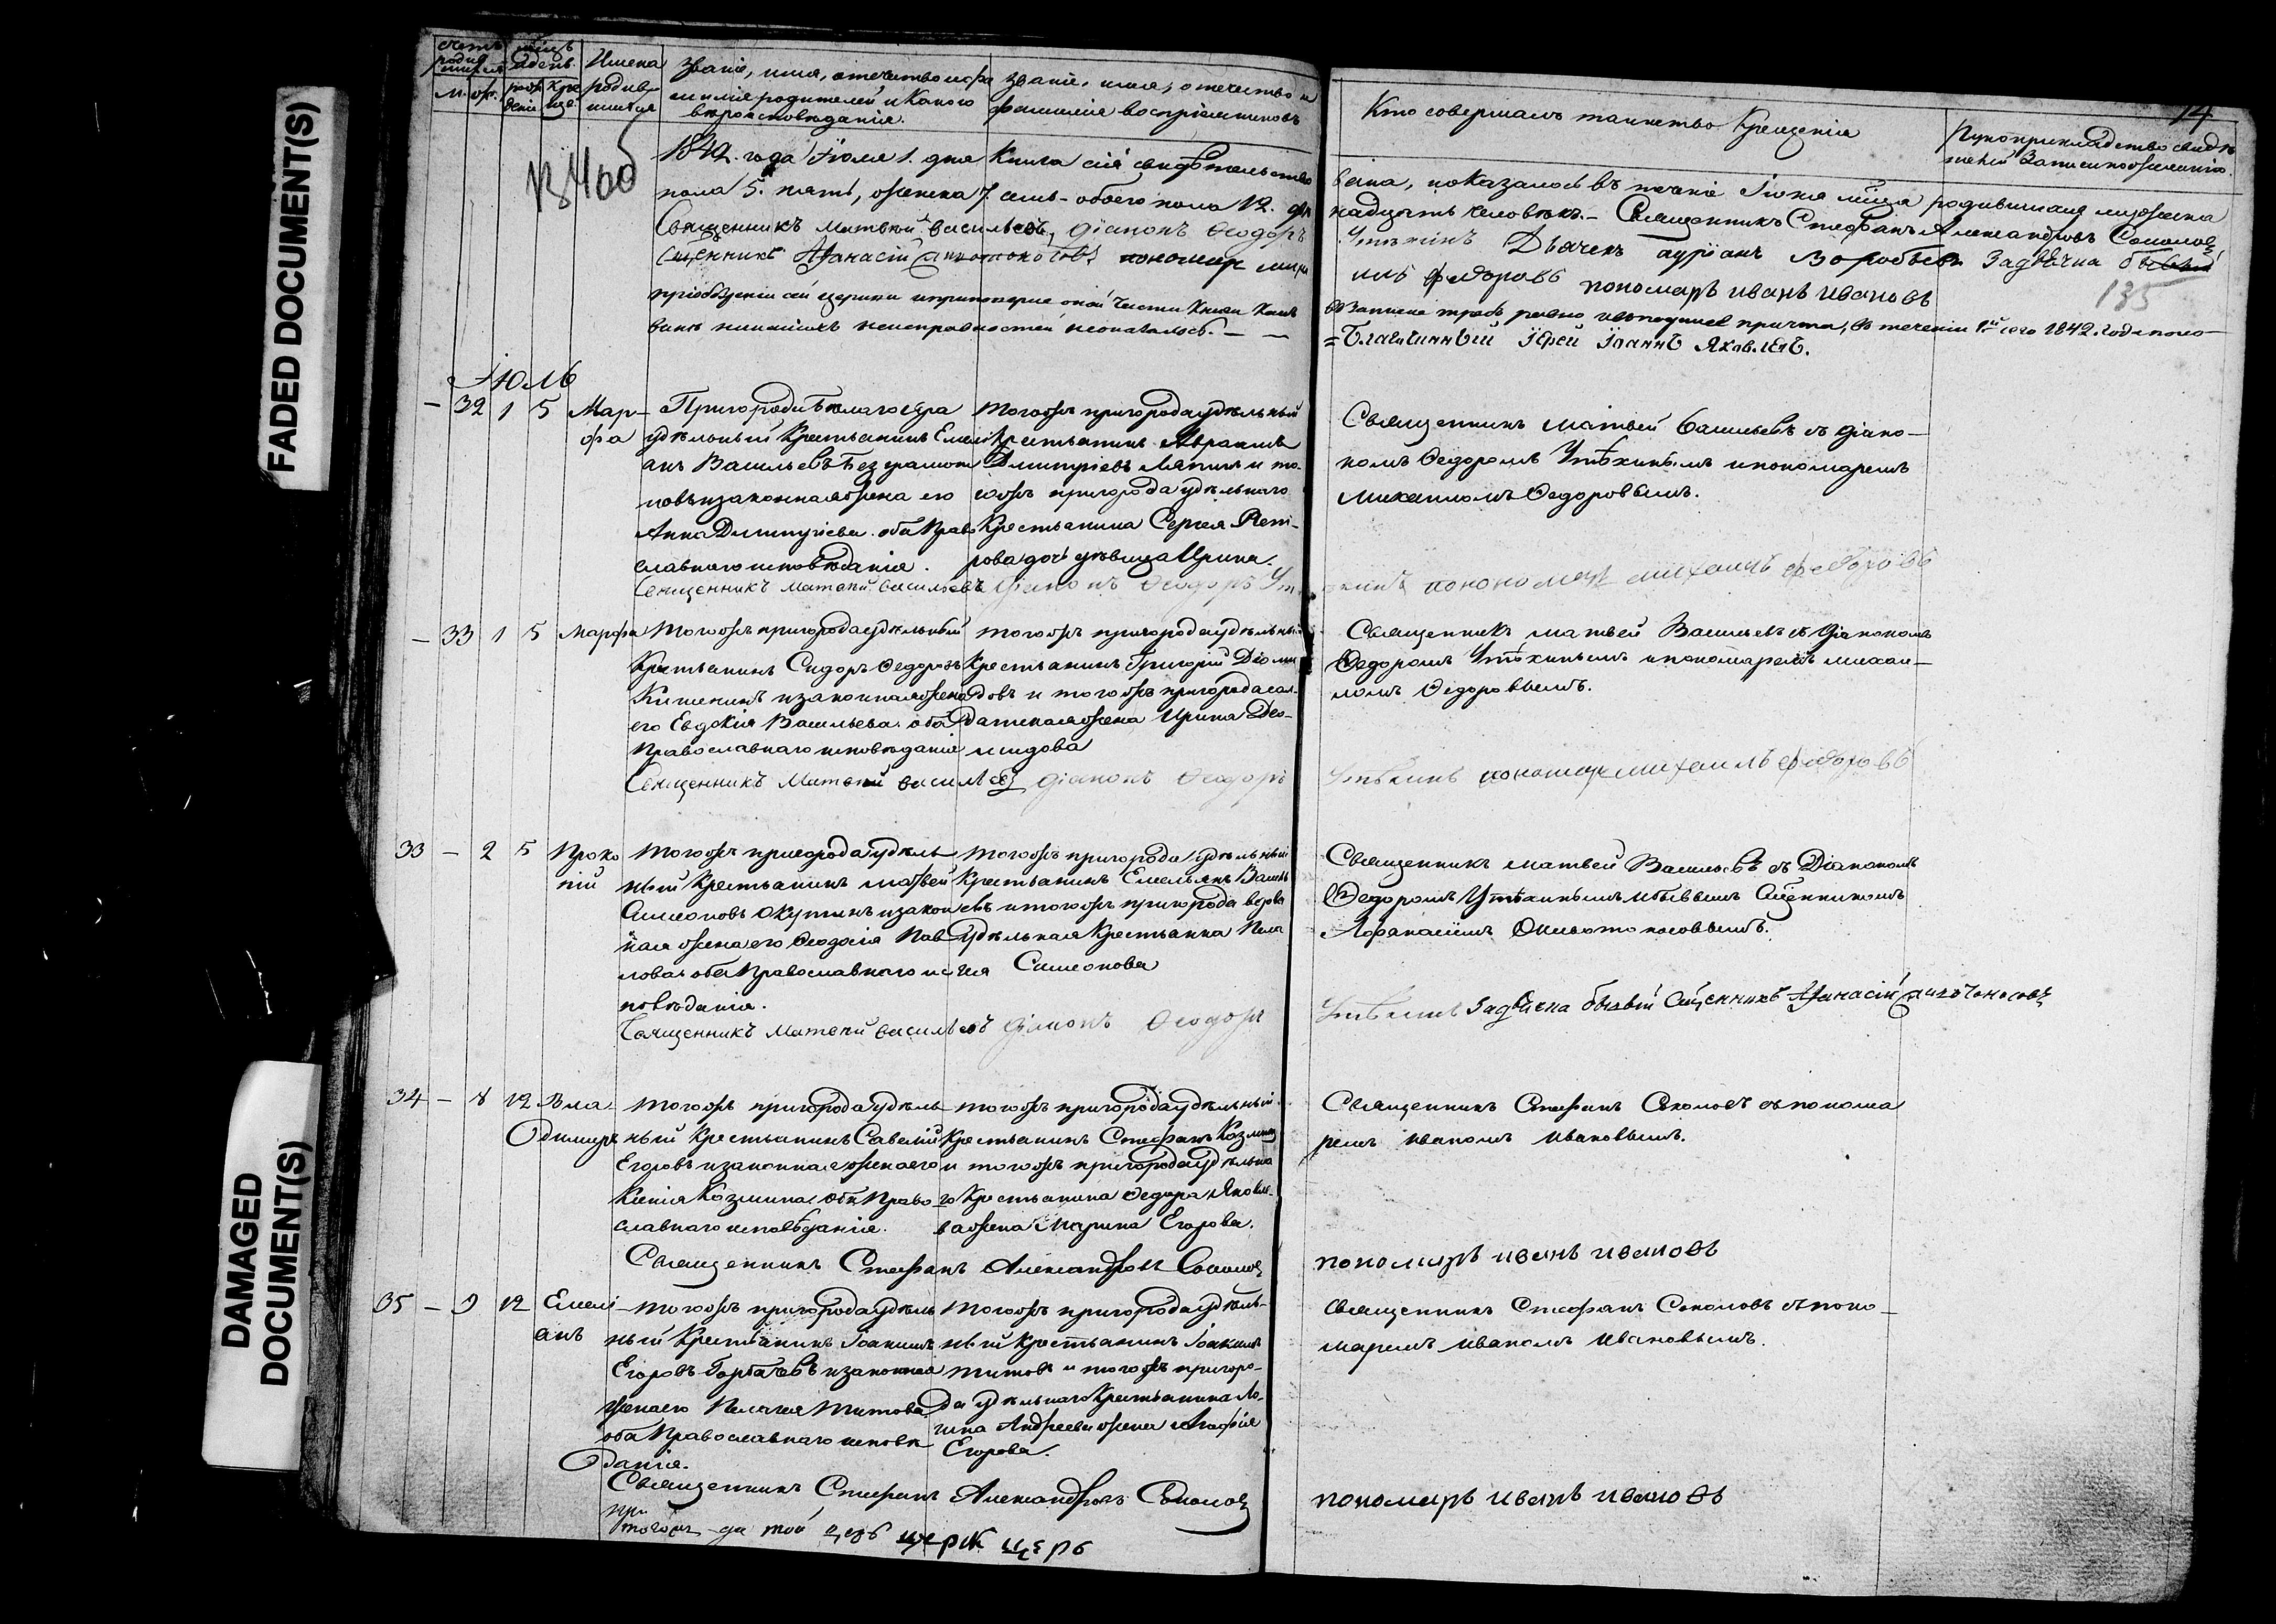 FADED DOCUMENT(S)
DAMAGED DOCUMENT(S)
14
счетъ родив- мѣсяцъ и день Имена родив- шихся
м. ж. рожденія креще.
Званіе, имя, отечество и фа милія родителей и Какого вѣроисповѣданія.
Званіе, имя, отечество и фамилія воспріемниковъ
Кто совершалъ таинство Крещенія
Рукоприкладство свидѣ телей Записи по желанію.
1842. года Іюля 1. дня Книга сія свидѣтельство
вана, показалось въ теченіе Іюня мѣсяца родившихся мужеска
пола 5. пять, женска 7. семь - обоего пола 12. две
надцать человѣкъ. - Священникъ Стефанъ Александровъ Соколов
Священникъ Матвей Васильевъ, діаконъ Ѳеодоръ
Утѣхинъ Дьячекъ Воробьевъ Задвѣчна бывый
Сщенникъ Афанасій пономарь миха
илъ федоровъ пономарь иванъ ивановъ
135
=Благочинный Іерей Іоаннъ Яковлевъ.
Іюль
- 32 1 5 Мар- фа
Пригорода Бѣлаго Яра
удѣльный Крестьянинъ Емели
анъ Васильевъ Безграмот
новъ изаконная жена его
Анна Димитріева. оба Право
славнаго исповѣданія.
тогожъ пригорода удѣльный
Крестьянинъ Авраамъ
Димитріевъ Ляпинъ и то-
гожъ пригорода удѣльнаго
Крестьянина Сергея Пет-
рова дочь дѣвица Ирина.
Священникъ Матвей Васильевъ съ діако-
номъ Ѳедоромъ Утѣхинымъ ипономаремъ
Михаиломъ Ѳедоровымъ.
Священникъ Матвей Васильевъ діаконъ Ѳеодоръ Ут
хинъ пономарь михаилъ федоровъ
- 33 1 5 Марфа
тогожъ пригорода удѣльный
Крестьянинъ Сидоръ Ѳедоровъ
Кишенинъ изаконная жена
его Евдокія Васильева. оба
Православнаго исповѣданія
тогожъ пригорода удѣльный
Крестьянинъ Григорій Діоми
довъ и тогожъ пригорода сол-
датская жена Ирина Діо-
мидова
Священникъ матвей Васильевъ съ діакономъ
Ѳедоромъ Утѣхинымъ ипономаремъ михаи-
ломъ Ѳедоровымъ.
Священникъ Матвей Васильевъ діаконъ Ѳеодоръ
Утѣхинъ пономарь михаилъ федоровъ
33 - 2 5 Проко пій
тогожъ пригорода удѣль
ный Крестьянинъ матвей
Симеоновъ Окутинъ изакон
ная жена его Ѳеодосія Пав
лова. оба Православнаго ис
повѣданія.
тогожъ пригорода удѣльный
Крестьянинъ Емельянъ Василь
евъ итогожъ пригорода вдова
удѣльная Крестьянка Пела
гея Симеонова
Священникъ матвей Васильевъ съ Діакономъ
Ѳедоромъ Утѣхинымъ ибывшимъ Сщенникомъ
Афанасіемъ
Священникъ Матвей Васильевъ діаконъ Ѳеодоръ
Утѣхинъ Задвѣчна бывый Сщенникъ Афанасій
34 - 8 12 Вла- димиръ
тогожъ пригорода удѣль
ный Крестьянинъ Савелій
Егоровъ изаконная жена его
Ксенія Козмина. оба Право
славнаго исповѣданія.
тогожъ пригорода удѣльный
Крестьянинъ Стефанъ Козмин
и тогожъ пригорода удѣльна
го Крестьянина Ѳедора Яковле
ва жена Марина Егорова.
Священникъ Стефанъ Соколовъ съ понома
ремъ иваномъ ивановымъ.
Священникъ Стефанъ Александровъ Соколов
пономарь иванъ ивановъ
35 - 9 12 Емели- анъ
тогожъ пригорода удѣль
ный Крестьянинъ Іоакимъ
Егоровъ Горбачевъ изаконная
жена его Пелагея Титова.
оба Православнаго исповѣ
данія.
тогожъ пригорода удѣль-
ный Крестьянинъ Іоакимъ
титовъ и тогожъ пригоро-
да удѣльнаго Крестьянина Ло-
гина Андреева жена Агафія
Егорова
Священникъ Стефанъ Соколовъ съ поно-
маремъ иваномъ ивановымъ.
Священникъ Стефанъ Александровъ Соколов
пономарь иванъ ивановъ